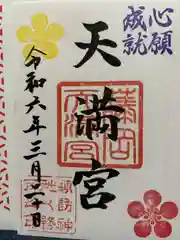 心願
成就
天満宮
令和六年三月二十日